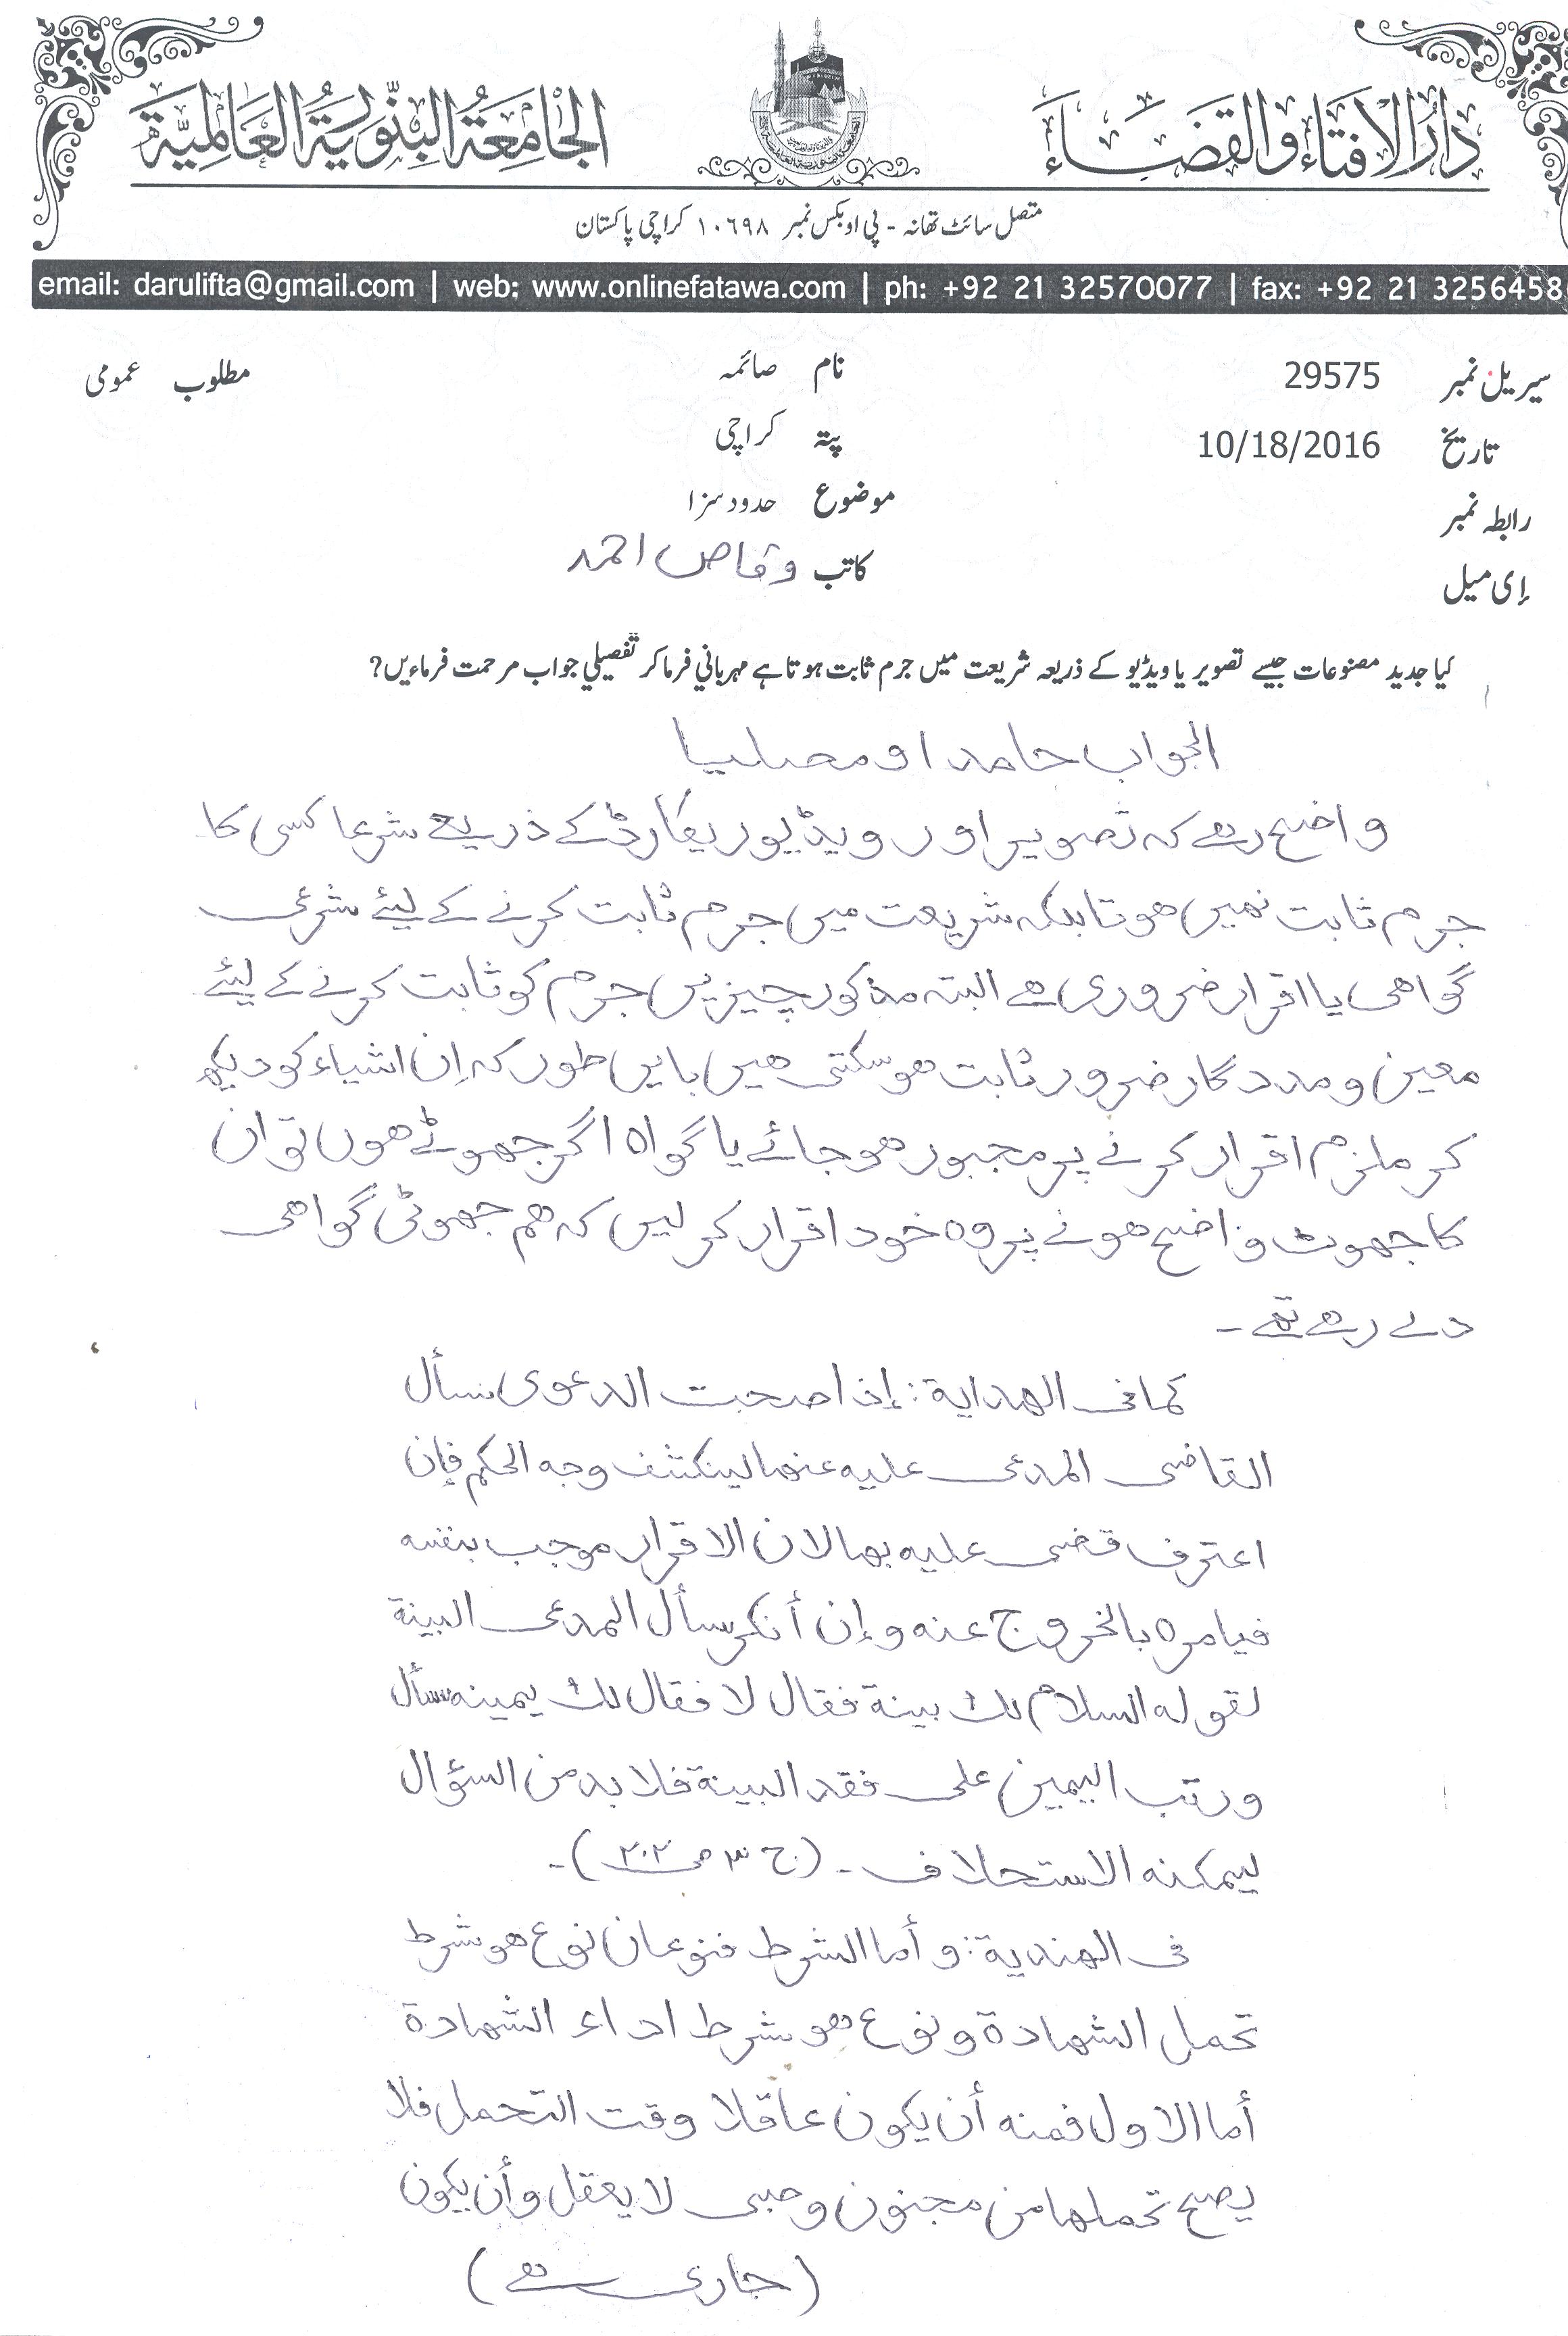 دارُ الافتاء والقضاء
الجامعۃ البنّوریۃ العالمیۃ
متصل سائٹ تھانہ - پی او بکس نمبر ۱۰۶۹۸ کراچی پاکستان
email: darulifta@gmail.com | web: www.onlinefatawa.com | ph: +92 21 32570077 | fax: +92 21 3256458
سیریل نمبر 29575 نام صائمہ مطلوب عمومی
تاریخ 10/18/2016 پتہ کراچی
رابطہ نمبر موضوع حدود سزا
إی میل کاتب وقاص احمد
کیا جدید مصنوعات جیسے تصویر یا ویڈیو کے ذریعہ شریعت میں جرم ثابت ہوتا ہے مہربانی فرما کر تفصیلي جواب مرحمت فرماءیں?
الجواب حامدا و مصلیا
واضح رھے کہ تصویر اور ویڈیو ریکارڈ کے ذریعے شرعا کسی کا
جرم ثابت نھیں ھوتا بلکہ شریعت میں جرم ثابت کرنے کے لیئے شرعی
گواھی یا اقرار ضروری ھے البتہ مذکور چیزیں جرم کو ثابت کرنے کے لیئے
معین و مددگار ضرور ثابت ھوسکتی ھیں بایں طور کہ اِن اشیاء کو دیکھ
کر ملزم اقرار کرنے پر مجبور ھوجائے یا گواہ اگر جھوٹے ھوں تو ان
کا جھوٹ واضح ھونے پر وہ خود اقرار کرلیں کہ ھم جھوٹی گواھی
دے رھے تھے -
کما فی الھدایة : إذا صحت الدعوی سأل
القاضی المدعی علیه عنھا لینکشف وجه الحکم فإن
اعترف قضی علیه بھا لان الاقرار موجب بنفسه
فیامرہ بالخروج عنه و إن أنکر سأل المدعی البینة
لقوله السلام لك بینة فقال لا فقال لك یمینه سأل
ورتب الیمین علی فقد البینة فلا بد من السؤال
لیمکنه الاستحلاف - (ج ۳ ص ۲۰۲) -
فی الھندیة : و أما الشرط فنوعان نوع ھو شرط
تحمل الشھادة و نوع ھو شرط اداء الشھادة
أما الاول فمنه أن یکون عاقلا وقت التحمل فلا
یصح تحملھا من مجنون و صبی لا یعقل و أن یکون
(جاری ھے)